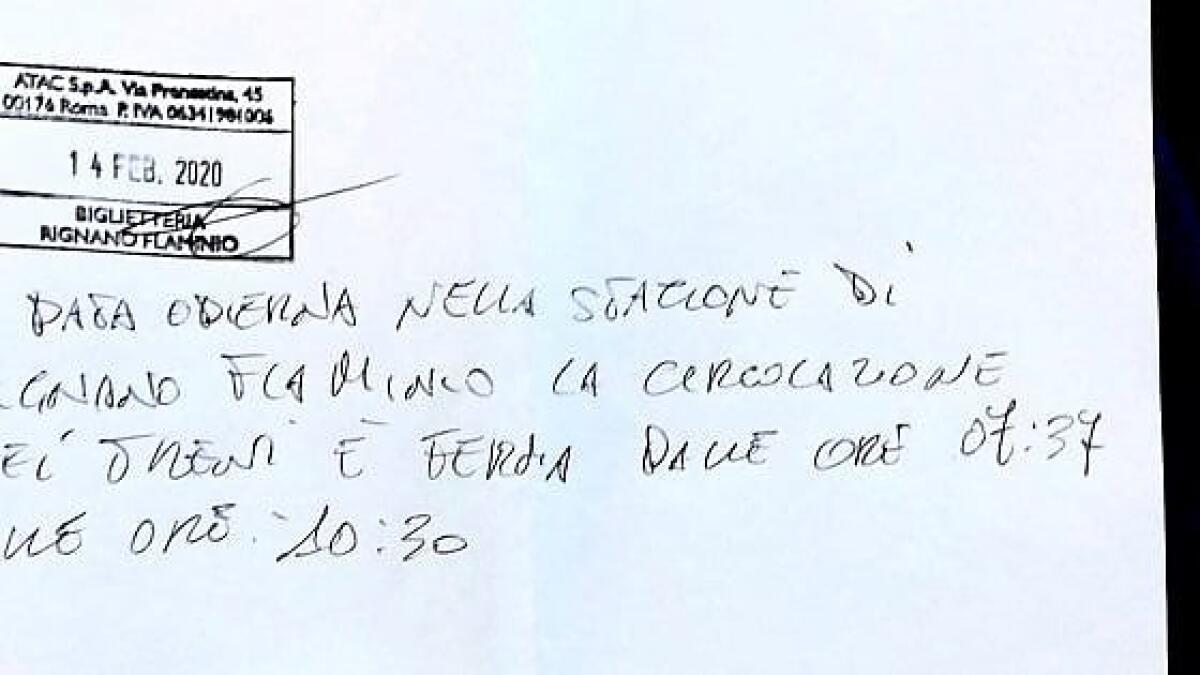 ATAC S.p.A. Via Prenestina, 45
00176 Roma P. IVA 06341981006
14 FEB. 2020
BIGLIETTERIA
RIGNANO FLAMINIO
DATA ODIERNA NELLA STAZIONE DI
GNANO FLAMINIO LA CIRCOLAZIONE
EI TRENI È FERMA DALLE ORE 07:37
LLE ORE: 10:30